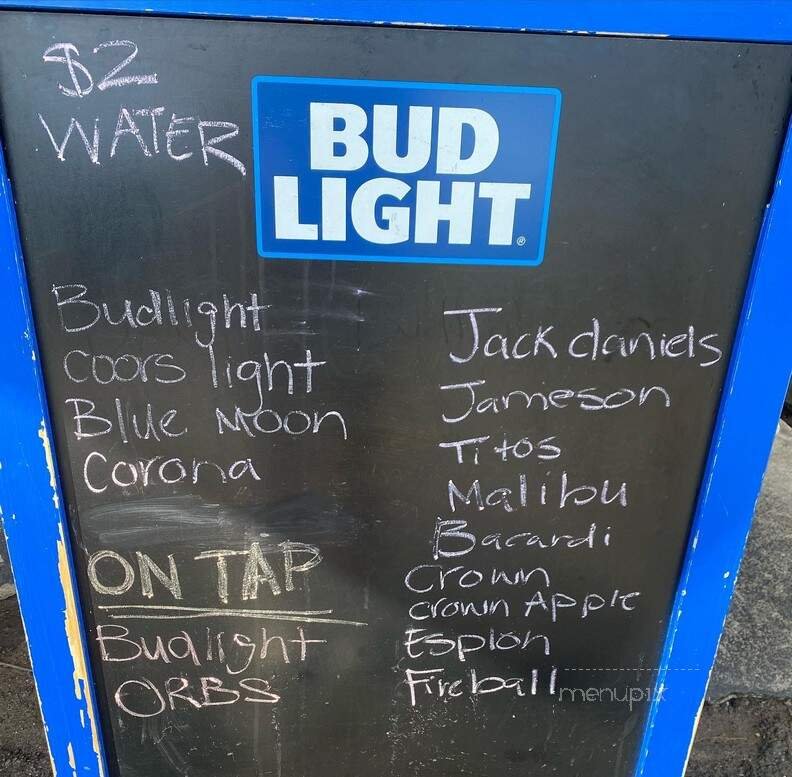 $2
WATER
BUD
LIGHT
Budlight
coors light
Blue Moon
Corona
ON TAP
Budlight
ORBS
Jack daniels
Jameson
Titos
Malibu
Bacardi
Crown
crown Apple
Esplon
Fireball
menupix